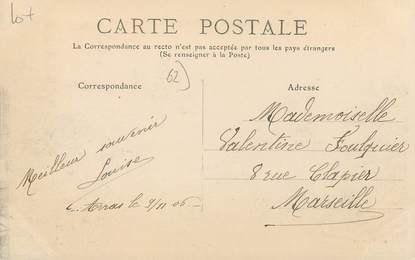 lot
CARTE POSTALE
La Correspondance au recto n'est pas acceptée par tous les pays étrangers
(Se renseigner à la Poste)
62
Correspondance
Meilleur souvenir
Louise
Arras le 9/11 06
Adresse
Mademoiselle
Valentine Foulquier
8 rue Clapier
Marseille